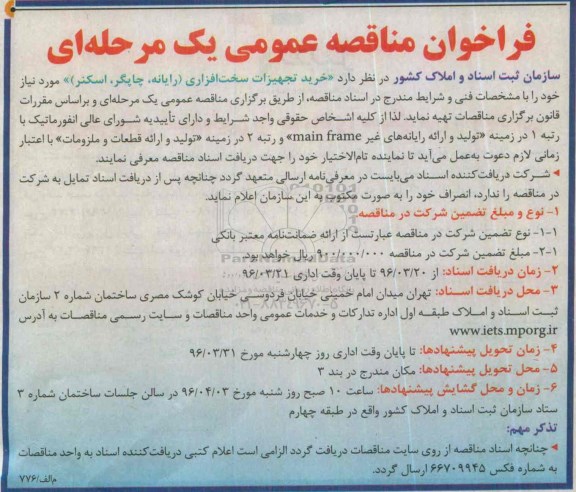 فراخوان مناقصه عمومی یک مرحله‌ای
سازمان ثبت اسناد و املاک کشور در نظر دارد «خرید تجهیزات سخت‌افزاری (رایانه، چاپگر، اسکنر)» مورد نیاز
خود را با مشخصات فنی و شرایط مندرج در اسناد مناقصه، از طریق برگزاری مناقصه عمومی یک مرحله‌ای و براساس مقررات
قانون برگزاری مناقصات تهیه نماید. لذا از کلیه اشخاص حقوقی واجد شرایط و دارای تأییدیه شورای عالی انفورماتیک با
رتبه ۱ در زمینه «تولید و ارائه رایانه‌های غیر main frame» و رتبه ۲ در زمینه «تولید و ارائه قطعات و ملزومات» با اعتبار
زمانی لازم دعوت به‌عمل می‌آید تا نماینده تام‌الاختیار خود را جهت دریافت اسناد مناقصه معرفی نمایند.
شرکت دریافت‌کننده اسناد می‌بایست در معرفی‌نامه ارسالی متعهد گردد چنانچه پس از دریافت اسناد تمایل به شرکت
در مناقصه را ندارد، انصراف خود را به صورت مکتوب به این سازمان اعلام نماید.
۱- نوع و مبلغ تضمین شرکت در مناقصه
۱-۱- نوع تضمین شرکت در مناقصه عبارتست از ارائه ضمانت‌نامه معتبر بانکی
۲-۱- مبلغ تضمین شرکت در مناقصه ۹۰۰/۰۰۰/۰۰۰ ریال خواهد بود
۲- زمان دریافت اسناد: از ۹۶/۰۳/۲۰ تا پایان وقت اداری ۹۶/۰۳/۲۱
۳- محل دریافت اسناد: تهران میدان امام خمینی خیابان فردوسی خیابان کوشک مصری ساختمان شماره ۲ سازمان
ثبت اسناد و املاک طبقه اول اداره تدارکات و خدمات عمومی واحد مناقصات و سایت رسمی مناقصات به آدرس
www.iets.mporg.ir
۴- زمان تحویل پیشنهادها: تا پایان وقت اداری روز چهارشنبه مورخ ۹۶/۰۳/۳۱
۵- محل تحویل پیشنهادها: مکان مندرج در بند ۳
۶- زمان و محل گشایش پیشنهادها: ساعت ۱۰ صبح روز شنبه مورخ ۹۶/۰۴/۰۳ در سالن جلسات ساختمان شماره ۳
ستاد سازمان ثبت اسناد و املاک کشور واقع در طبقه چهارم
تذکر مهم:
چنانچه اسناد مناقصه از روی سایت مناقصات دریافت گردد الزامی است اعلام کتبی دریافت‌کننده اسناد به واحد مناقصات
به شماره فکس ۶۶۷۰۹۹۴۵ ارسال گردد.
م‌الف/۷۷۶